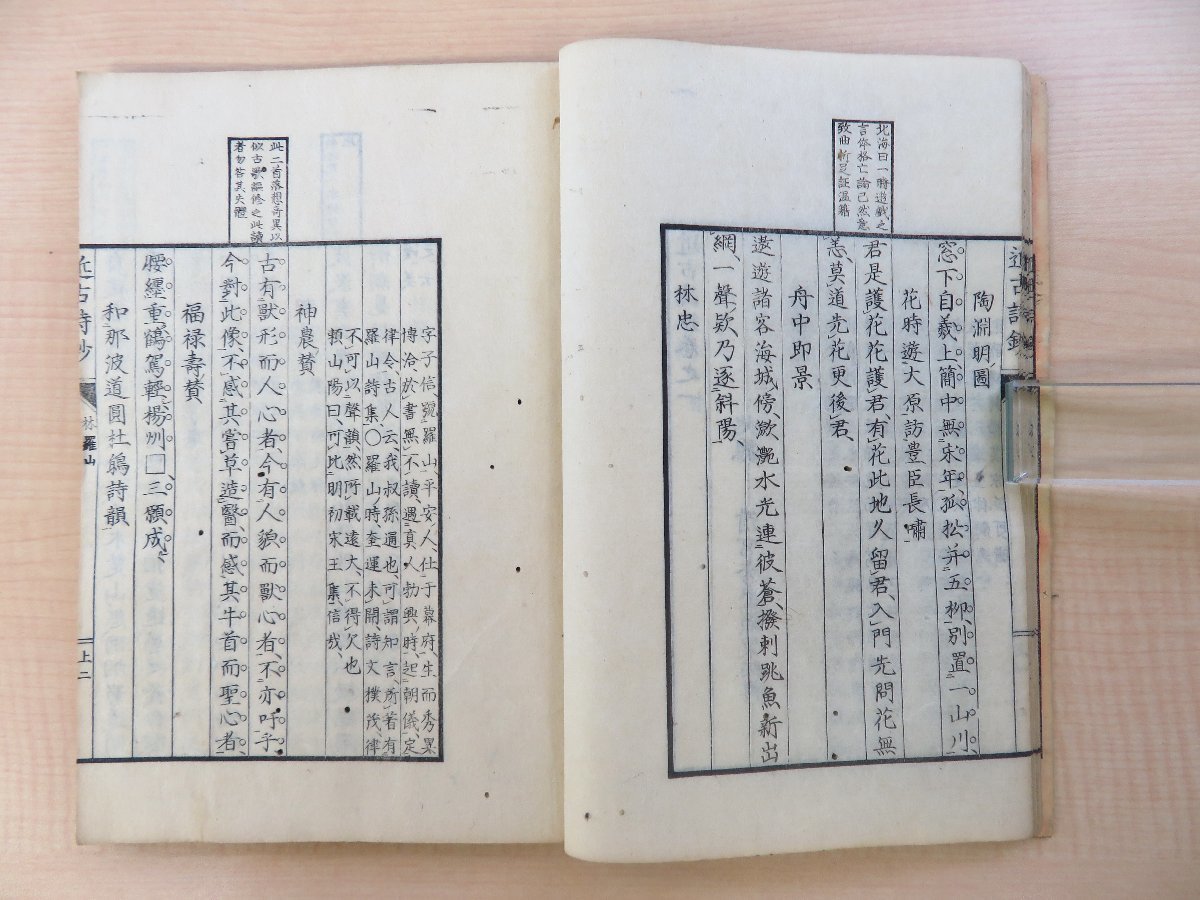 近古詩鈔
北海曰一時遊戲之
言体格亡論已然意
致曲折足証溫藉
陶淵明圖
窓下自義上簡中無宋年孤松并五柳別置一山川
花時遊大原訪豊臣長嘯
君是護花花護君有花此地久留君入門先問花無
恙莫道先花更後君
舟中即景
遨遊諸客海城傍瀲灔水光連彼蒼撥剌跳魚新出
網一聲欵乃逐斜陽
林忠
此二首落想奇異以
似古
者勿咎其失體
字子信號羅山平安人仕于幕府生而秀異
博洽於書無不讀遇真人勃興時起朝儀定
律令古人云我叔孫通也可謂知言所著有
羅山詩集〇羅山時奎運未開詩文撲茂律
不可以聲韻然所載遠大不得欠也
賴山陽曰可比明初宋王集信哉
神農賛
古有獸形而人心者今有人貌而獸心者不亦吁乎
今對此像不感其嘗草造醫而感其牛首而聖心者
福禄壽賛
腰纏重鶴駕輕揚州囗三願成
和那波道圓杜鵑詩韻
近古詩鈔
林羅山
上二